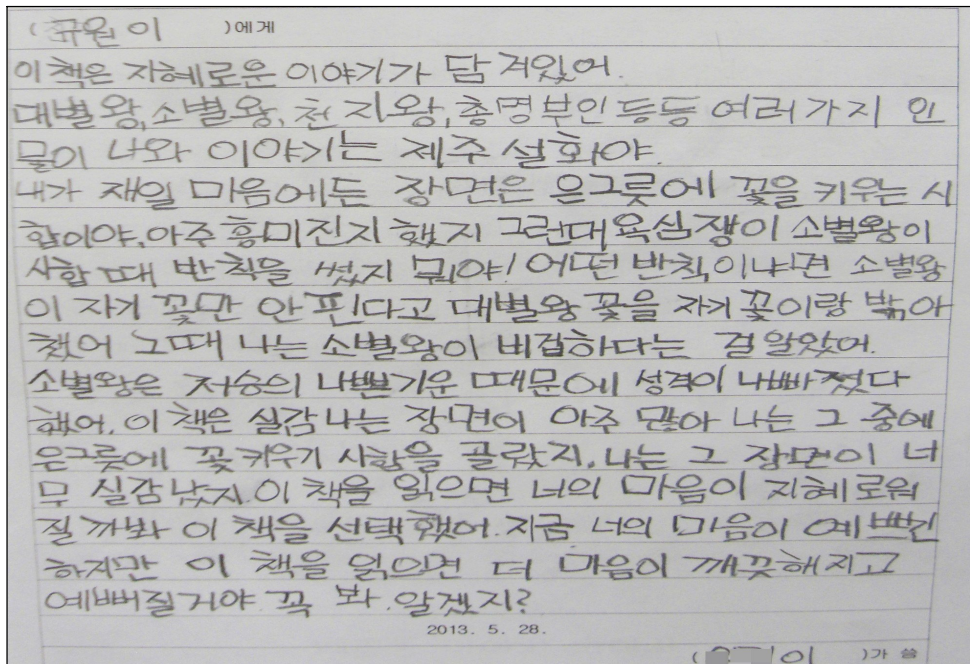 (규원이 )에게
이 책은 지혜로운 이야기가 담겨있어.
대별왕, 소별왕, 천지왕, 총명부인 등등 여러가지 인
물이 나와 이야기는 제주 설화야.
내가 재일 마음에든 장면은 은그릇에 꽃을 키우는 시
합이야. 아주 흥미진지 했지 그런대 욕심쟁이 소별왕이
시합 때 반칙을 썼지 뭐야! 어떤 반칙이냐면 소별왕
이 자기 꽃만 안 핀다고 대별왕 꽃을 자기 꽃이랑 밖아
챘어 그때 나는 소별왕이 비겁하다는 걸 알았어.
소별왕은 저승의 나쁜기운 때문에 성격이 나빠졌다
했어. 이 책은 실감나는 장면이 아주 많아 나는 그 중에
은그릇에 꽃키우기 시합을 골랐지. 나는 그 장면이 너
무 실감났지. 이 책을 읽으면 너의 마음이 지혜로워
질까봐 이 책을 선택했어. 지금 너의 마음이 예쁘긴
하지만 이 책을 읽으면 더 마음이 깨끗해지고
예뻐질거야. 꼭 봐. 알겠지?
2013. 5. 28.
( 이 )가 씀